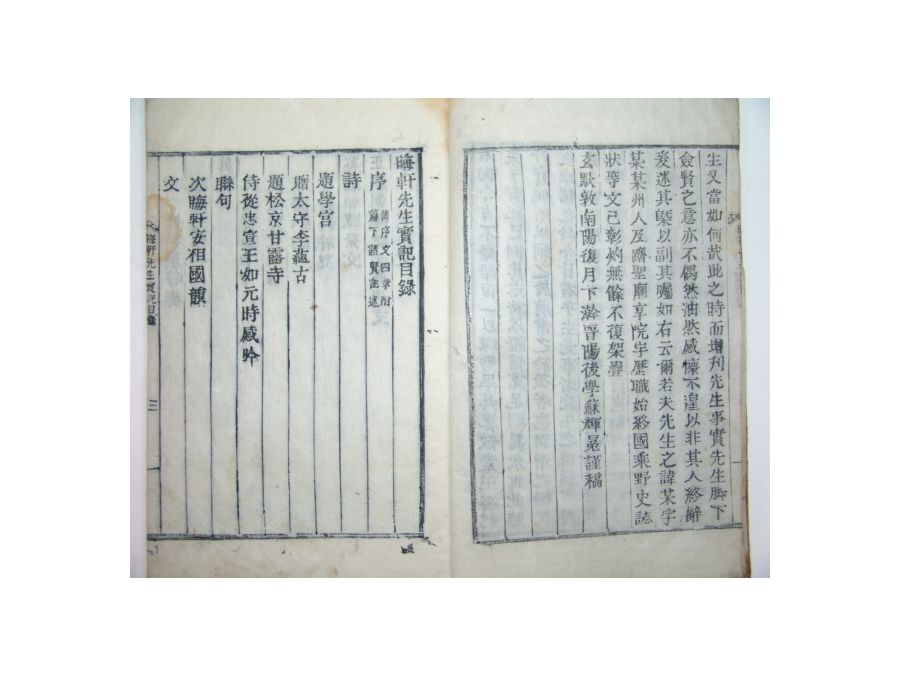 生又當如何哉此之時而增刊先生事實先生脚下
僉賢之意亦不偶然油然感懷不遑以非其人終辭
爰述其槩以副其囑如右云爾若夫先生之諱某字
某某州人及躋聖廟享院宇歷職始終國乘野史誌
狀等文已彰灼無餘不復架疊
玄默敦牂陽復月下澣晋陽後學蘇輝冕謹稿
晦軒先生實記目錄
序
舊序文四章附
篇下諸賢記述
詩
題學宮
贈太守李蘊古
題松京甘露寺
侍從忠宣王如元時感吟
聯句
次晦軒安相國韻
文
晦軒先生實記目錄
三